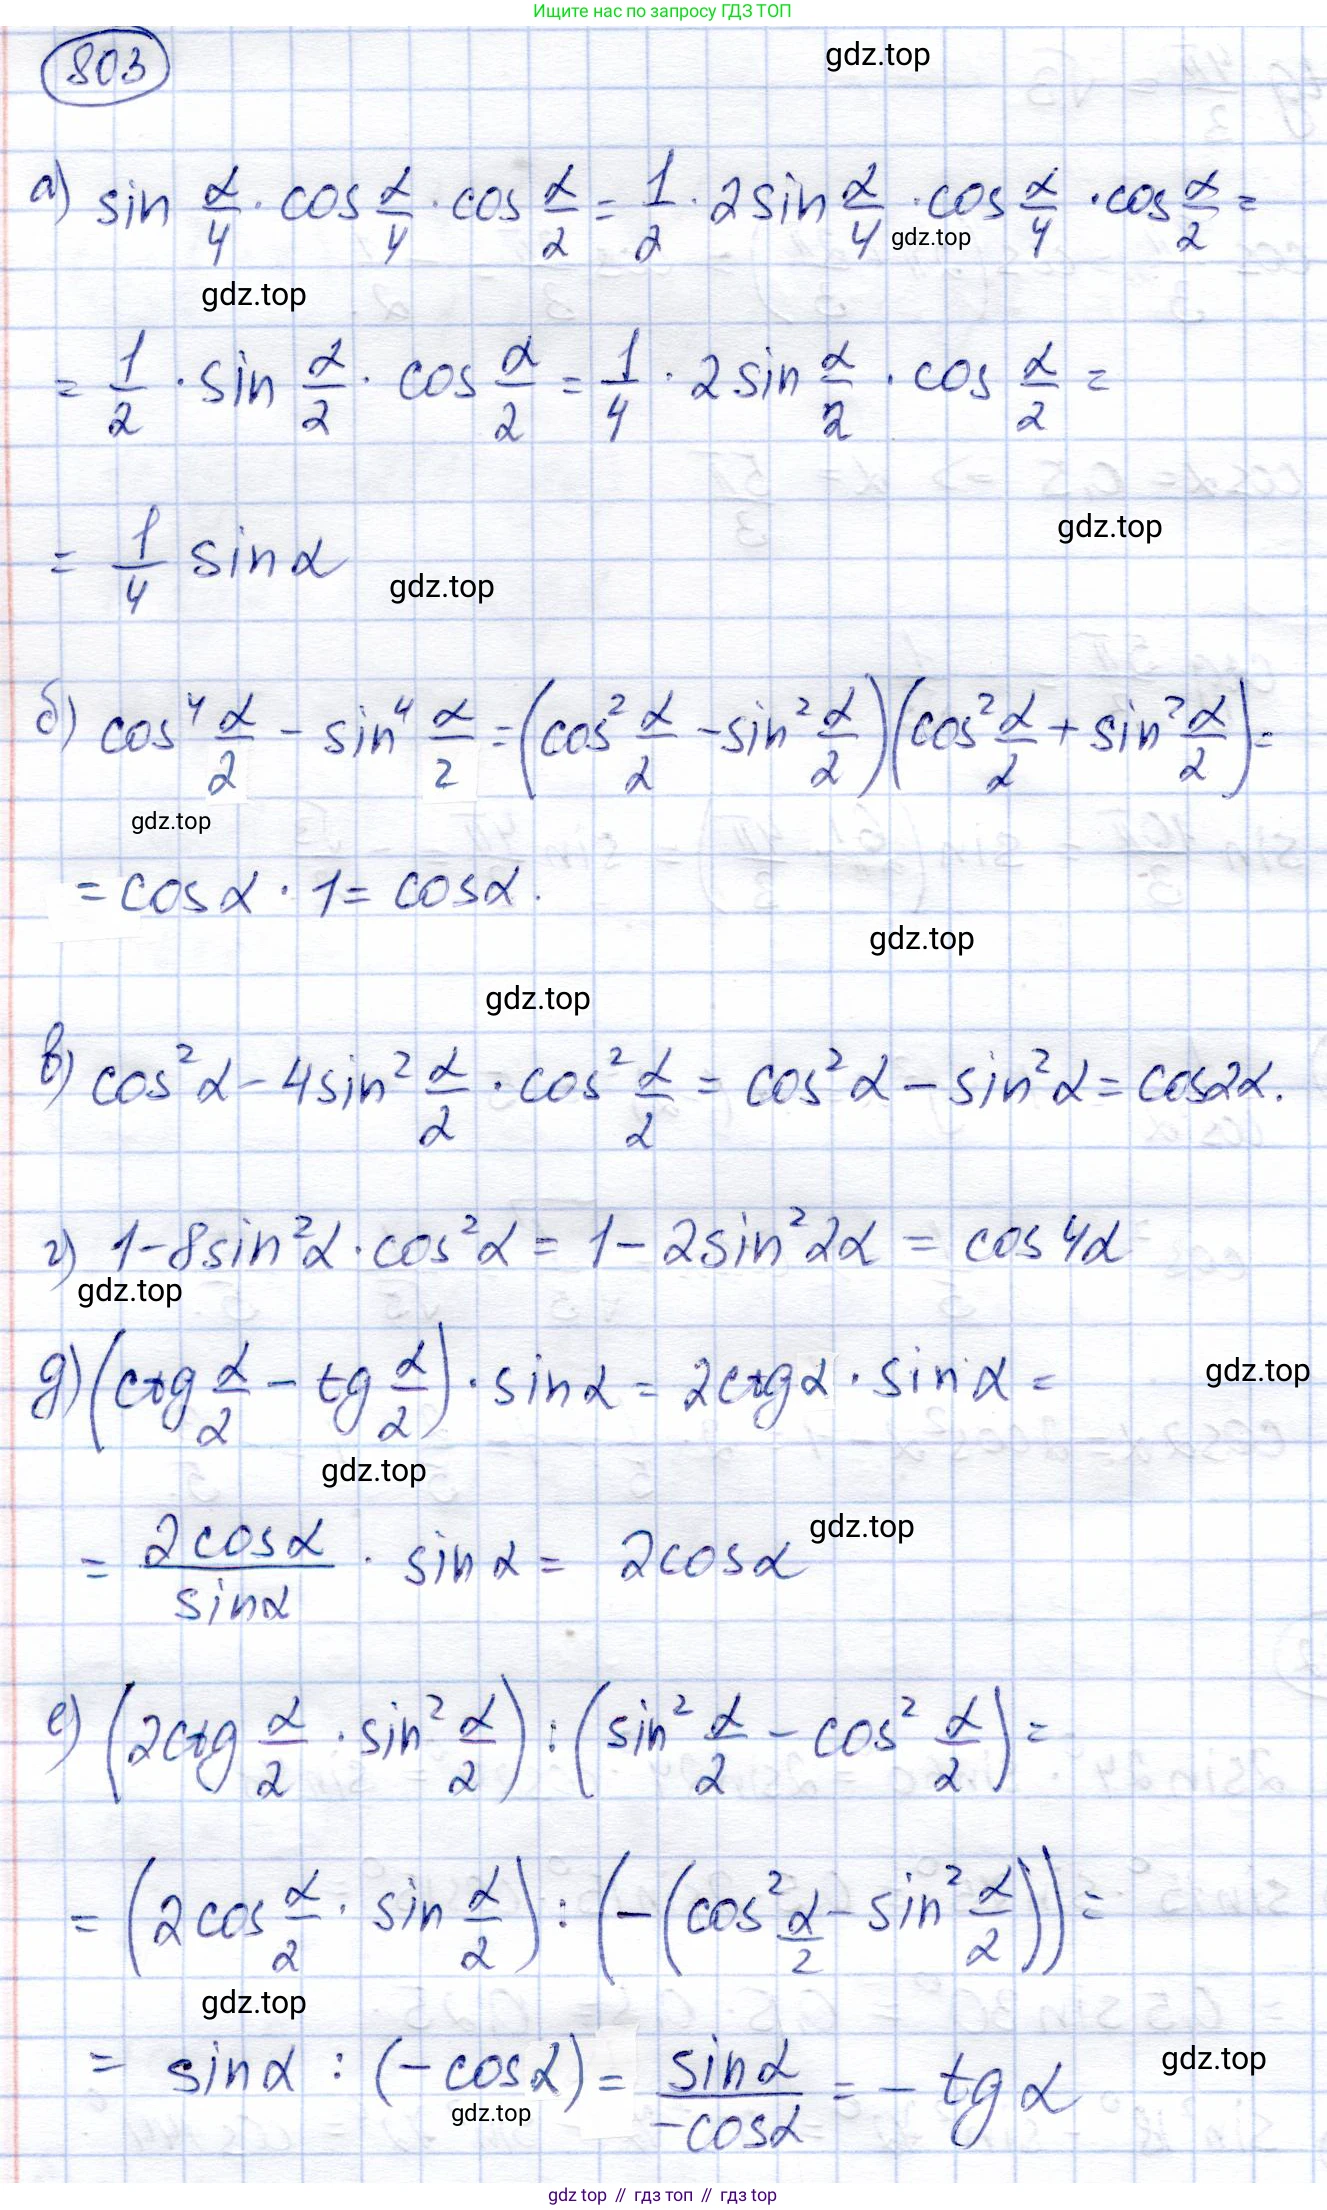 Ищите нас по запросу ГДЗ ТОП
803
gdz.top
а) sin α/4 · cos α/4 · cos α/2 = 1/2 · 2sin α/4 · cos α/4 · cos α/2 =
gdz.top
gdz.top
= 1/2 · sin α/2 · cos α/2 = 1/4 · 2sin α/2 · cos α/2 =
gdz.top
= 1/4 sin α
gdz.top
б) cos⁴ α/2 - sin⁴ α/2 = (cos² α/2 - sin² α/2)(cos² α/2 + sin² α/2) =
gdz.top
= cos α · 1 = cos α.
gdz.top
gdz.top
в) cos² α - 4sin² α/2 · cos² α/2 = cos² α - sin² α = cos2α.
г) 1 - 8sin² α · cos² α = 1 - 2sin² 2α = cos 4α
gdz.top
д) (ctg α/2 - tg α/2) · sin α = 2ctg α · sin α =
gdz.top
gdz.top
= 2cos α/sin α · sin α = 2cos α
gdz.top
е) (2ctg α/2 · sin² α/2) : (sin² α/2 - cos² α/2) =
= (2cos α/2 · sin α/2) : (-(cos² α/2 - sin² α/2)) =
gdz.top
= sin α : (-cos α) = sin α/-cos α = - tg α
gdz.top
gdz.top
gdz top // гдз топ // гдз top